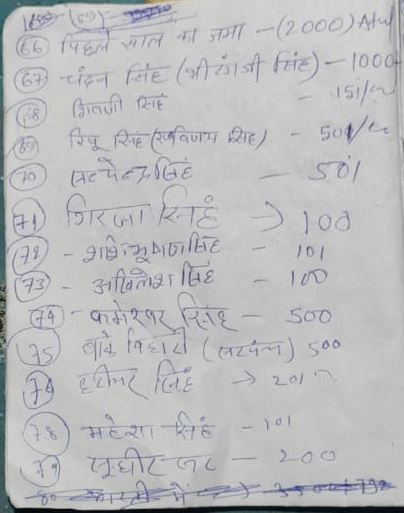 (69)
66 पिछले साल का जमा - (2000)
67 चंदन सिंह (श्रीरंगजी सिंह) - 1000
68 शिवजी सिंह - 151/-
69 रिषू सिंह (स्व विजय सिंह) - 501/-
70 सत्येन्द्र सिंह - 501
71 गिरजा सिंह → 100
72 - शशिभूषण सिंह - 101
73 - अखिलेश सिंह - 100
74 - कमेश्वर सिंह - 500
75 बांके बिहारी (सरपंच) 500
76 सिंह → 201
78 महेश सिंह - 101
79 - 200
80